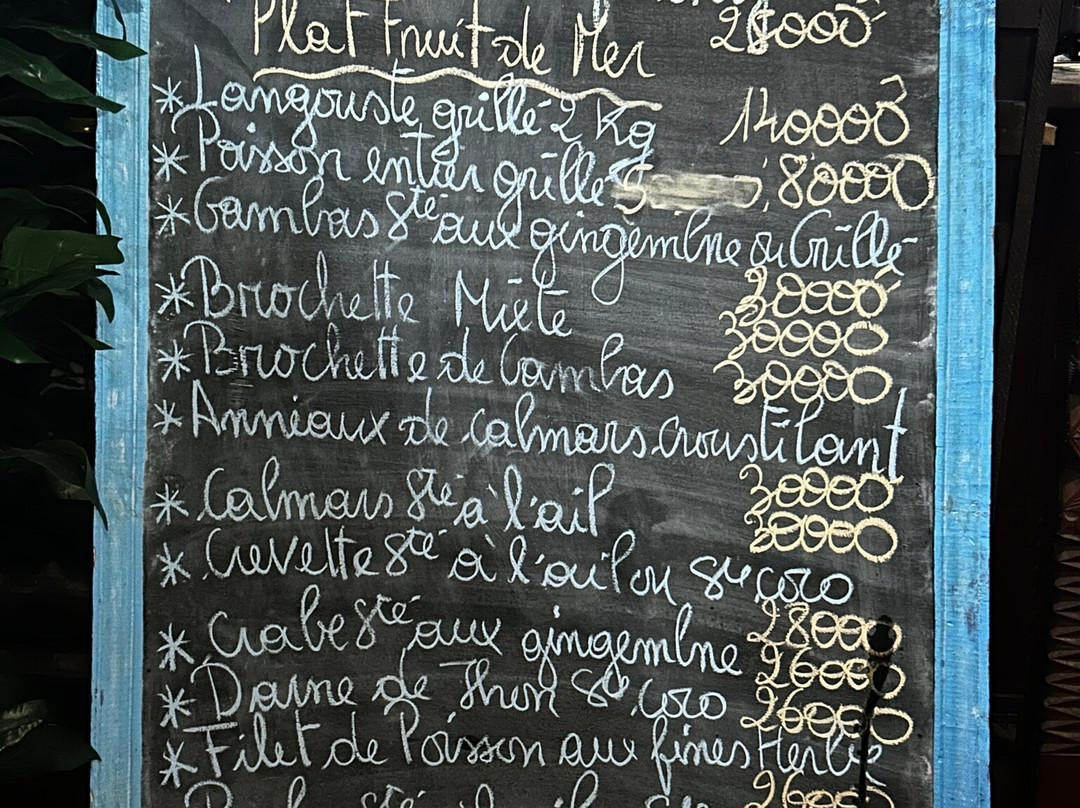 28000
Plat Fruit de Mer
*Langouste grillé 2 Kg 140000
*Poisson entier grillé 80000
*Gambas Sté aux gingembre ou Grillé
30000
*Brochette Mixte 30000
*Brochette de Gambas 30000
*Anneaux de calmars croustilant
30000
*Calmars Sté à l'ail 30000
*Crevette Sté à l'ail ou Sce coco
28000
*Crabe Sté aux gingembre 26000
*Darne de Thon Sce coco 26000
*Filet de Poisson aux fines Herbe
26000